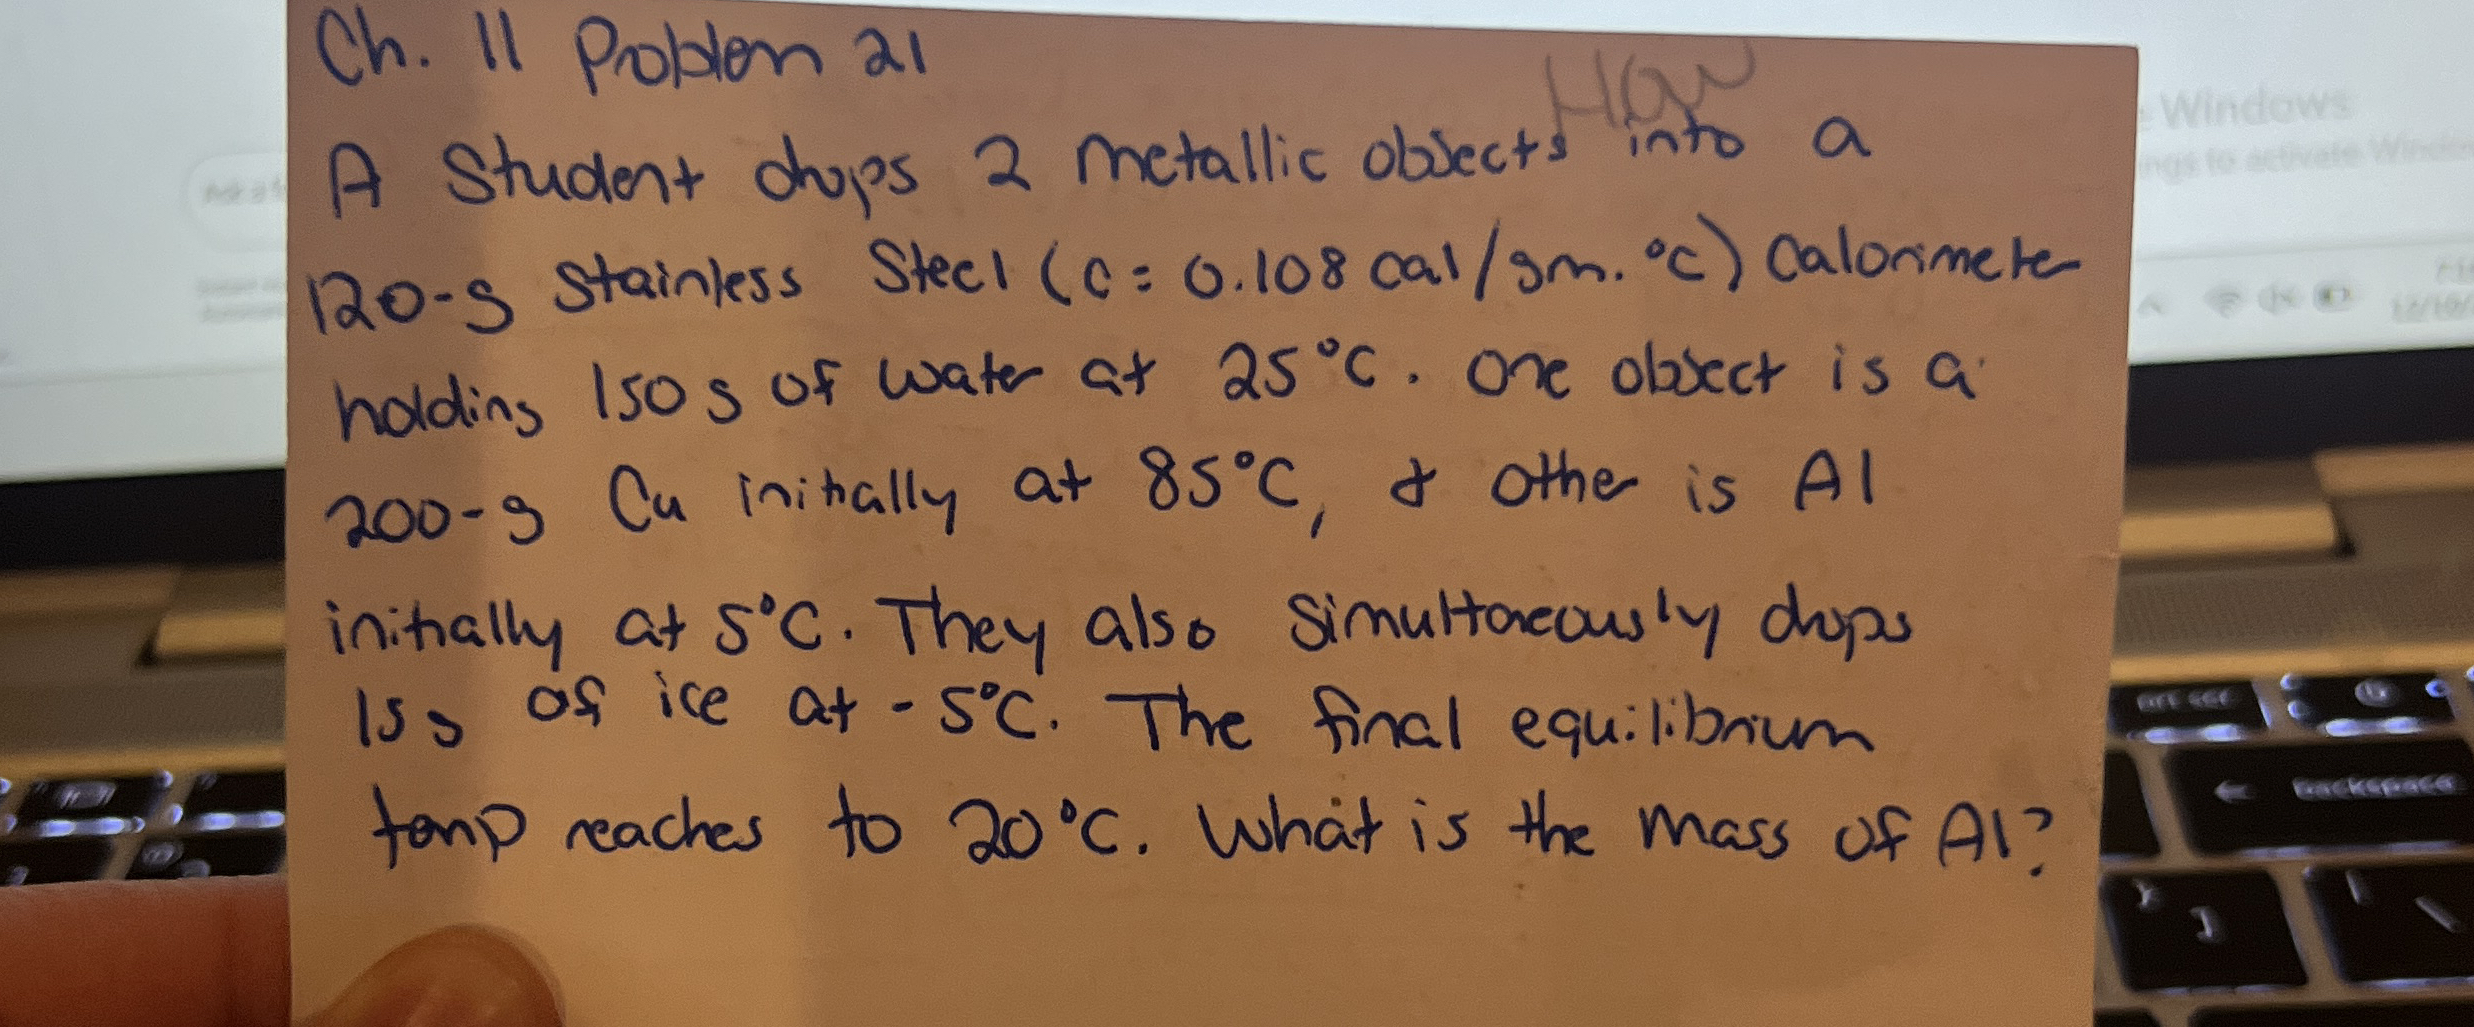 Ch. 11 Problem 21
How
A Student drops 2 metallic objects into a
120-g Stainless Steel (c = 0.108 cal/gm. °C) Calorimeter
holding 150 g of water at 25°C. One object is a
200-g Cu initially at 85°C, & other is Al
initially at 5°C. They also simultaneously drops
15g of ice at -5°C. The final equilibrium
temp reaches to 20°C. What is the mass of Al?
Windows
Backspace